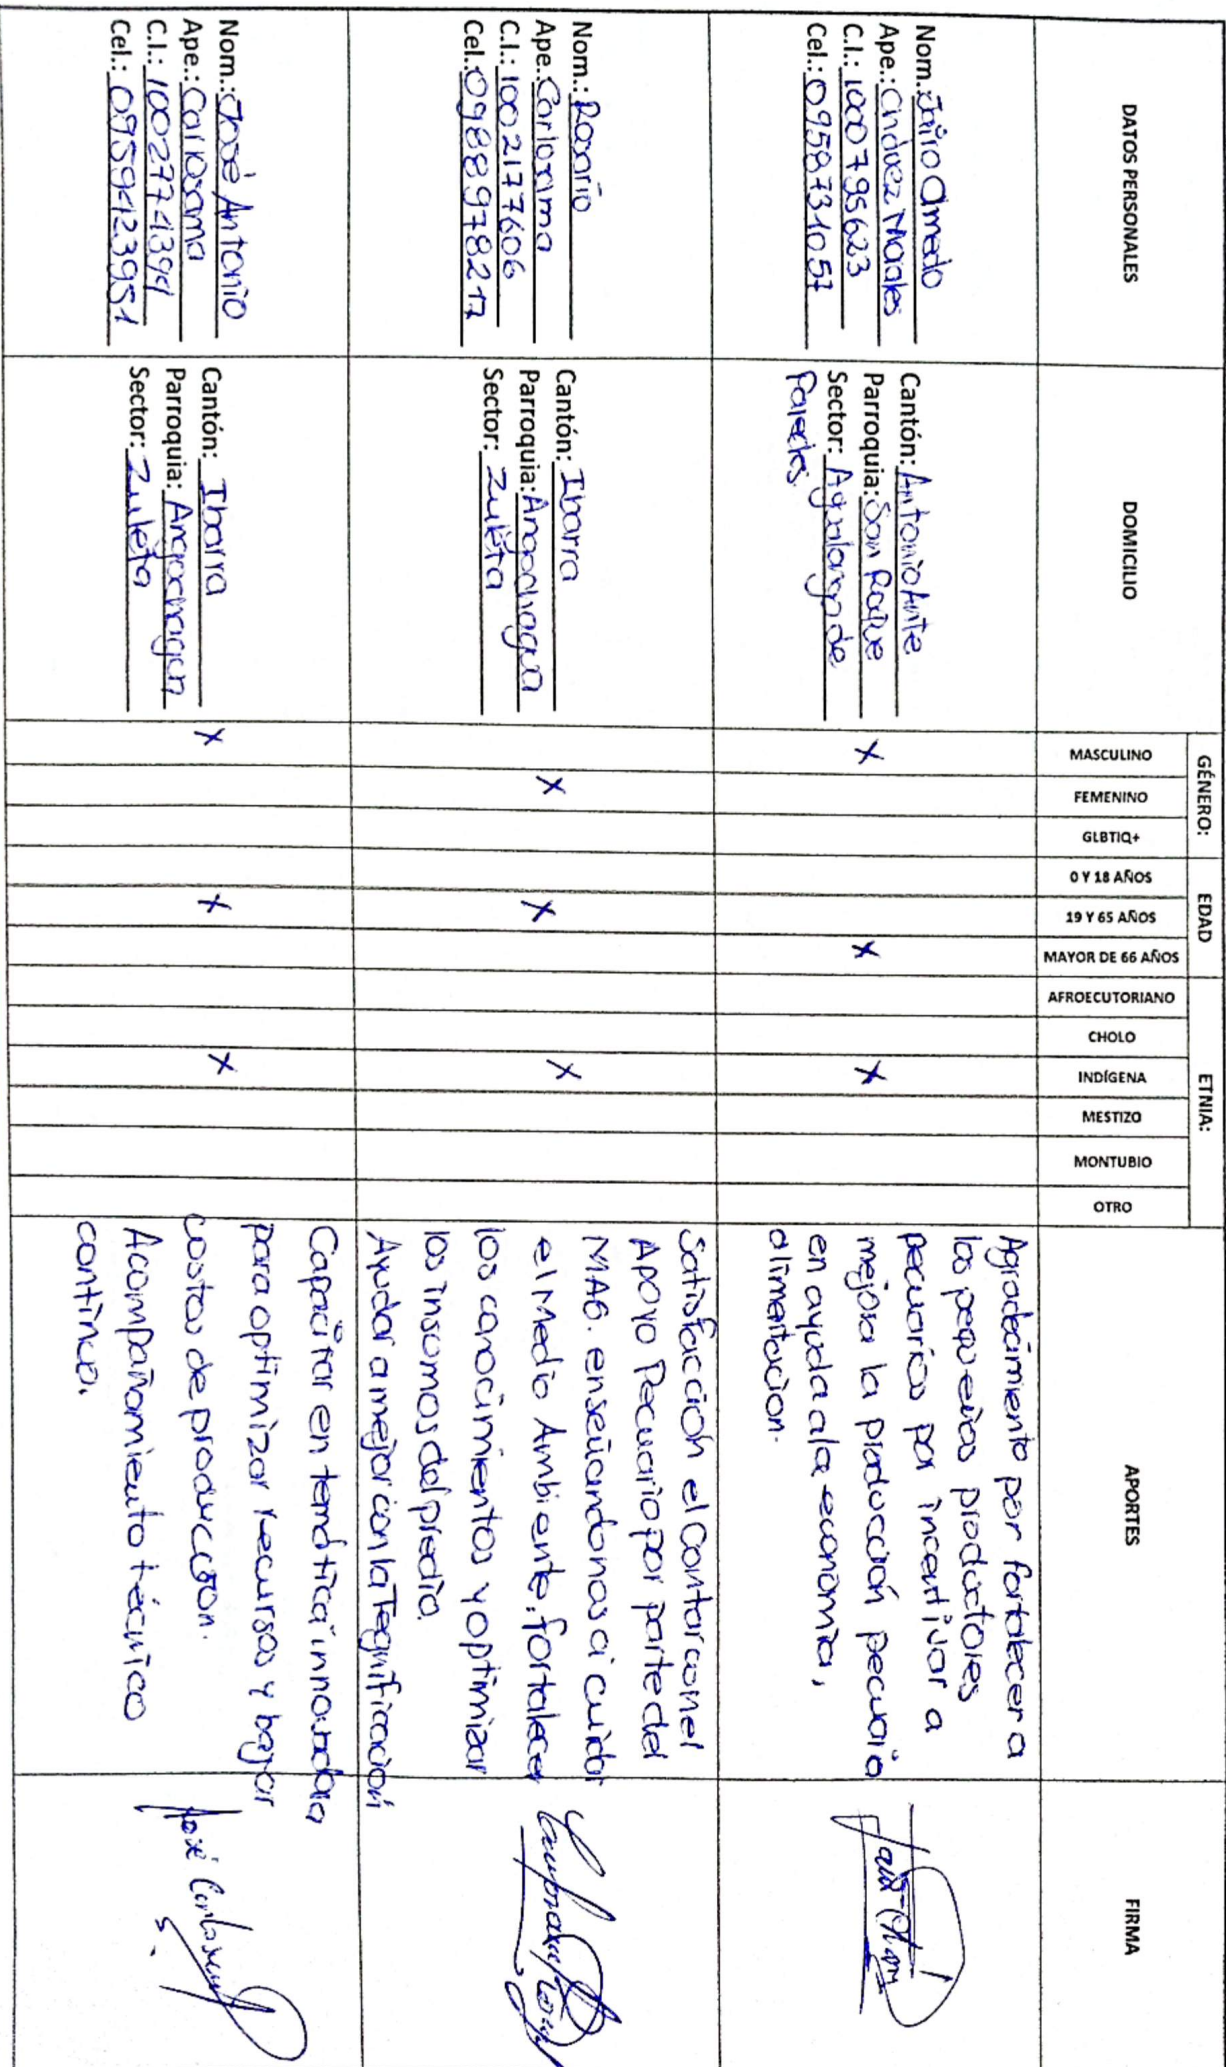 DATOS PERSONALES
DOMICILIO
GÉNERO:
EDAD
ETNIA:
APORTES
FIRMA
MASCULINO
FEMENINO
GLBTIQ+
0 Y 18 AÑOS
19 Y 65 AÑOS
MAYOR DE 66 AÑOS
AFROECUTORIANO
CHOLO
INDÍGENA
MESTIZO
MONTUBIO
OTRO
Nom.: Jairo Amedo
Ape.: Chávez Morales
C.I.: 1000795623
Cel.: 0958731057
Cantón: Antonio Ante
Parroquia: San Roque
Sector: Agualongo de
Paredes
X
X
X
Agradecimiento por fortalecer a
los pequeños productores
pecuarios por incentivar a
mejora la producción pecuaria
en ayuda a la economía,
alimentacion.
Nom.: Rosario
Ape.: Carlosama
C.I.: 1002177606
Cel.: 0988978217
Cantón: Ibarra
Parroquia: Angochagua
Sector: Zuleta
X
X
X
Satisfacción el Contar con el
Apoyo Pecuario por parte del
MAG. enseñandonos a cuidar
el Medio Ambiente, fortalecer
los conocimientos y optimizar
los insumos del predio.
Ayudar a mejor con la Tegnificación
Nom.: José Antonio
Ape.: Carlosama
C.I.: 1002774394
Cel.: 0959423951
Cantón: Ibarra
Parroquia: Angochagua
Sector: Zuleta
X
X
X
Capacitar en temática innovadora
para optimizar recursos y bajar
costos de producción.
Acompañamiento técnico
continuo.
José Carlosama